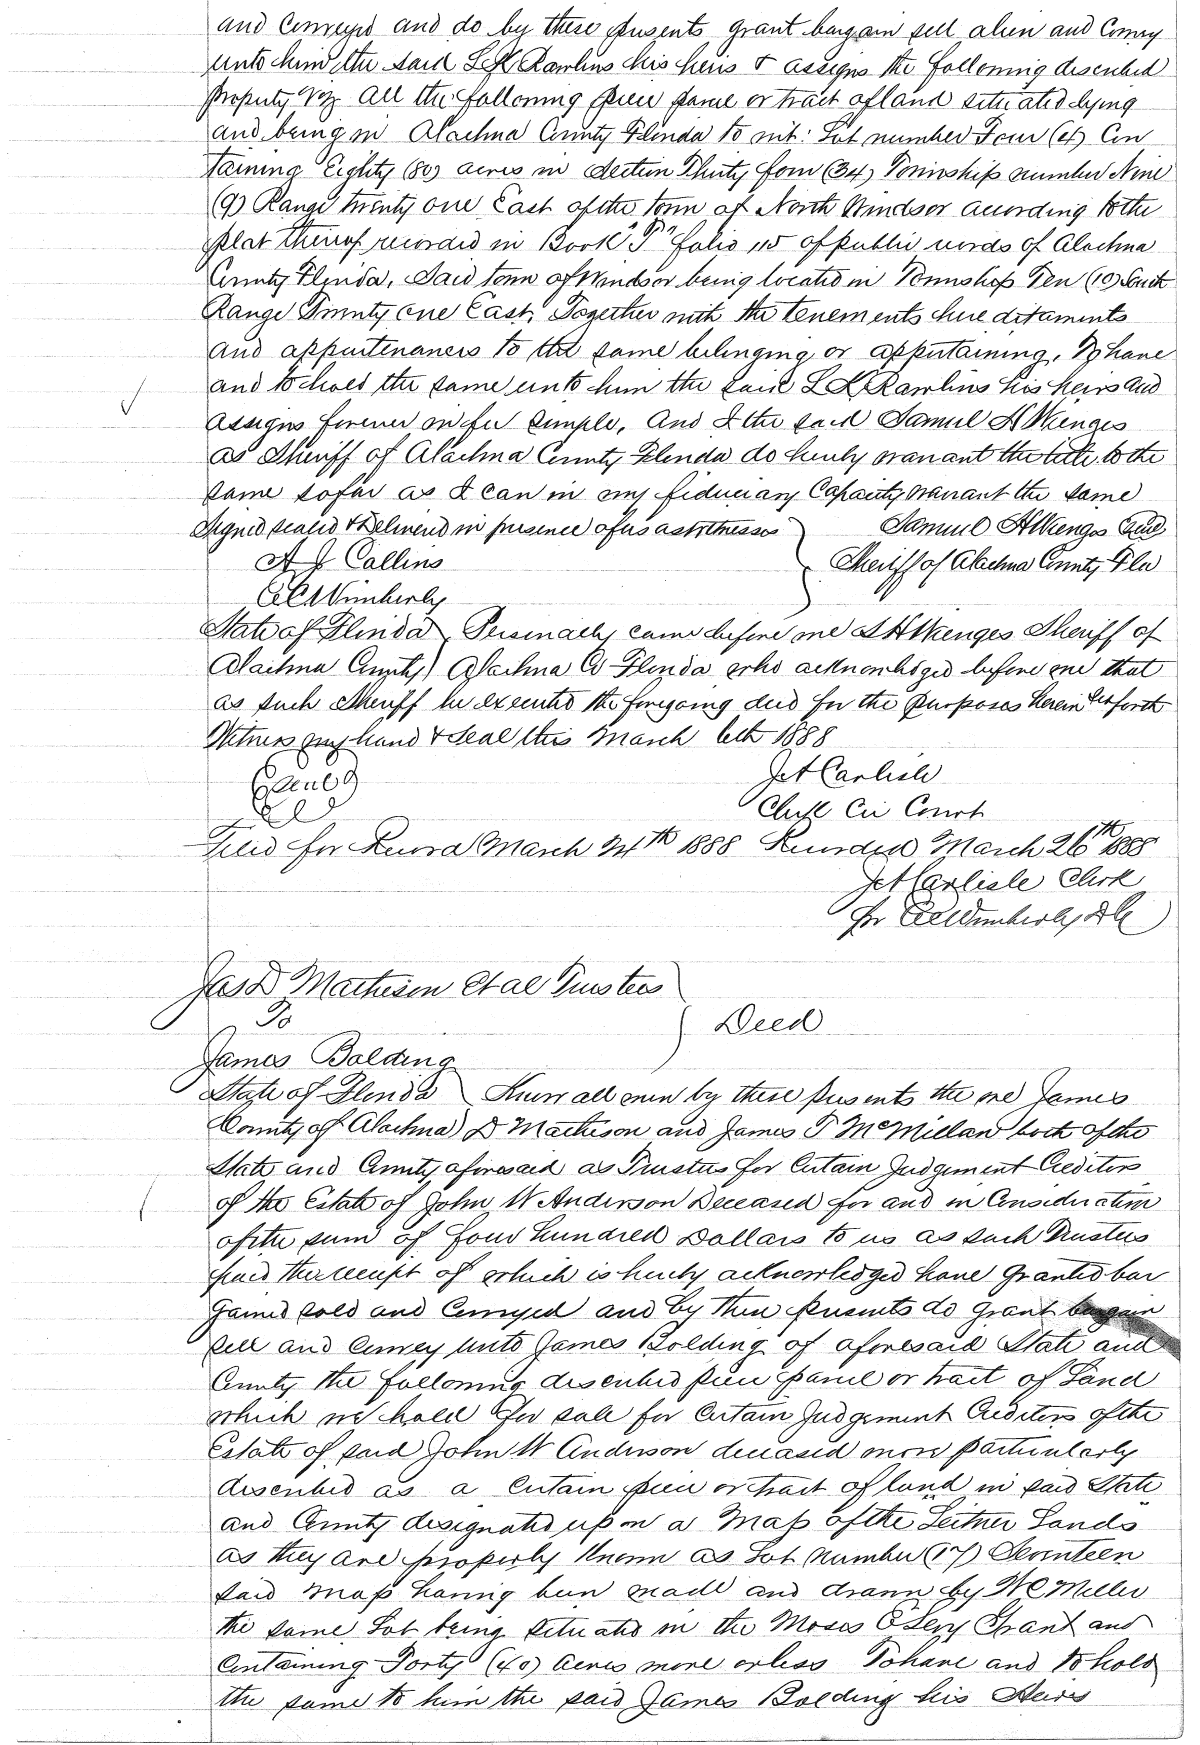 and Conveyed and do by these presents grant bargain sell alien and Convey
unto him the said L K Rawlins his heirs & assigns the following described
property Viz All the following piece parcel or tract of land situated lying
and being in Alachua County Florida to wit: Lot number Four (4) Con
taining Eighty (80) acres in Section Thirty four (34) Township number Nine
(9) Range twenty one East of the town of North Windsor according to the
plat thereof recorded in Book "P" folio 115 of public records of Alachua
County Florida, Said town of Windsor being located in Township Ten (10) South
Range Twenty one East, Together with the tenements hereditaments
and appurtenances to the same belonging or appertaining. To have
and to hold the same unto him the said L K Rawlins his heirs and
assigns forever in fee simple. And I the said Samuel H Wienges
as Sheriff of Alachua County Florida do hereby warrant the title to the
same so far as I can in my fiduciary Capacity warrant the same
Signed sealed & Delivered in presence of us as witnesses Samuel H Wienges Seal
A J Collins Sheriff of Alachua County Fla
C C Wimberly
State of Florida Personally came before me S H Wienges Sheriff of
Alachua County Alachua Co Florida who acknowledged before me that
as such Sheriff he executed the foregoing deed for the purposes herein set forth
Witness my hand & Seal this March 6th 1888
Seal J A Carlisle
Clerk Cir Court
Filed for Record March 24th 1888 Recorded March 26th 1888
J A Carlisle Clerk
for C C Wimberly D C
Jas D Matheson Et al Trustees
To Deed
James Bolding
State of Florida Know all men by these presents the we James
County of Alachua D Matheson and James P McMillan both of the
State and County aforesaid as Trustees for Certain Judgement Creditors
of the Estate of John W Anderson Deceased for and in Consideration
of the sum of four hundred Dollars to us as such Trustees
paid the receipt of which is hereby acknowledged have Granted bar
gained sold and Conveyed and by these presents do grant bargain
sell and Convey unto James Bolding of aforesaid State and
County the following described piece parcel or tract of Land
which we hold for sale for Certain Judgement Creditors of the
Estate of said John W Anderson deceased more particularly
described as a Certain piece or tract of land in said State
and County designated upon a Map of the Leitner Lands
as they are properly Known as Lot number (17) Seventeen
said map having been made and drawn by W C Miller
the same Lot being situated in the Moses E Levy Grant and
Containing Forty (40) Acres more or less To have and to hold
the same to him the said James Bolding his Heirs